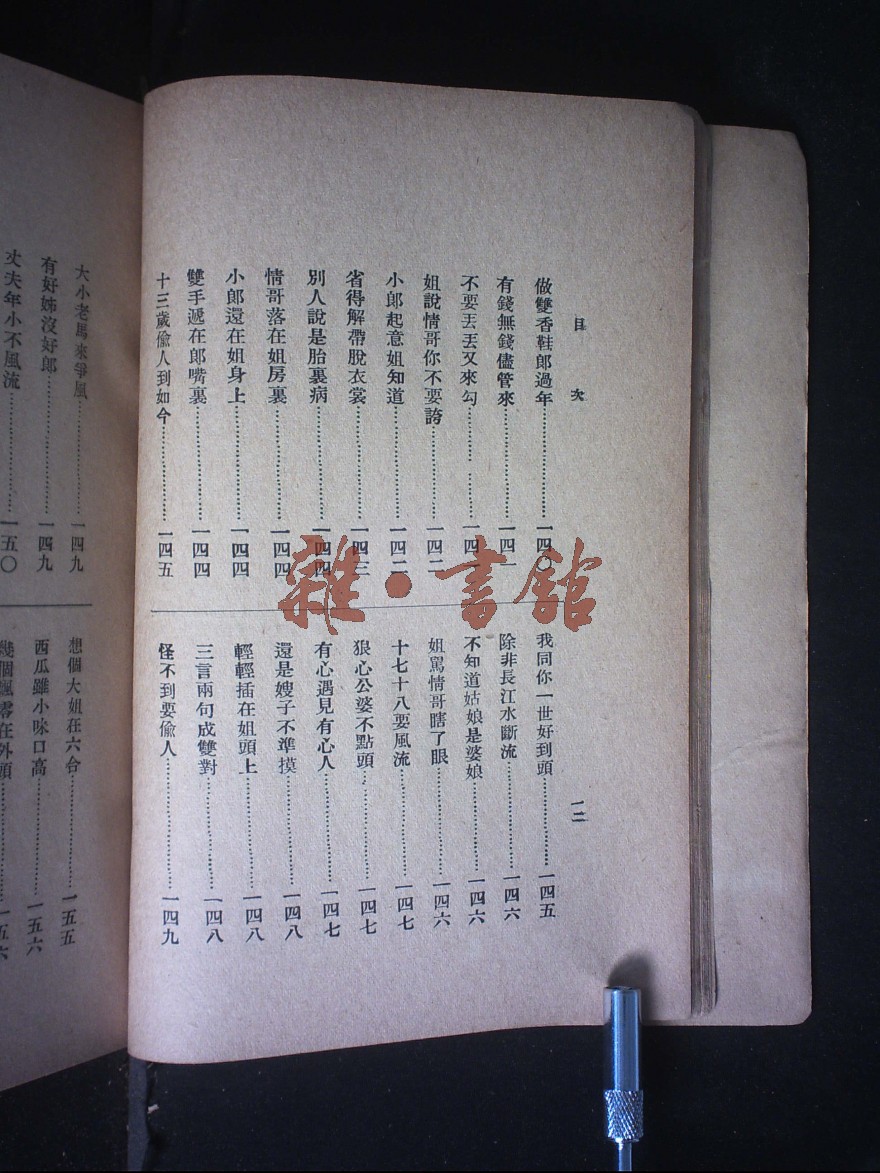 目次
一二
做雙香鞋郎過年…………一四〇
有錢無錢儘管來…………一四一
不要丟丟又來勾…………一四一
姐說情哥你不要誇…………一四二
小郎起意姐知道…………一四二
省得解帶脫衣裳…………一四三
別人說是胎裏病…………一四四
情哥落在姐房裏…………一四四
小郎還在姐身上…………一四四
雙手遞在郎嘴裏…………一四四
十三歲偷人到如今…………一四五
我同你一世好到頭…………一四五
除非長江水斷流…………一四六
不知道姑娘是婆娘…………一四六
姐罵情哥瞎了眼…………一四六
十七十八要風流…………一四七
狠心公婆不點頭…………一四七
有心遇見有心人…………一四七
還是嫂子不準摸…………一四八
輕輕插在姐頭上…………一四八
三言兩句成雙對…………一四八
怪不到要偷人…………一四九
大小老馬來爭風…………一四九
有好姊沒好郎…………一四九
丈夫年小不風流…………一五〇
想個大姐在六合…………一五五
西瓜雖小味口高…………一五六
幾個飄零在外頭…………一五六
雜·書館